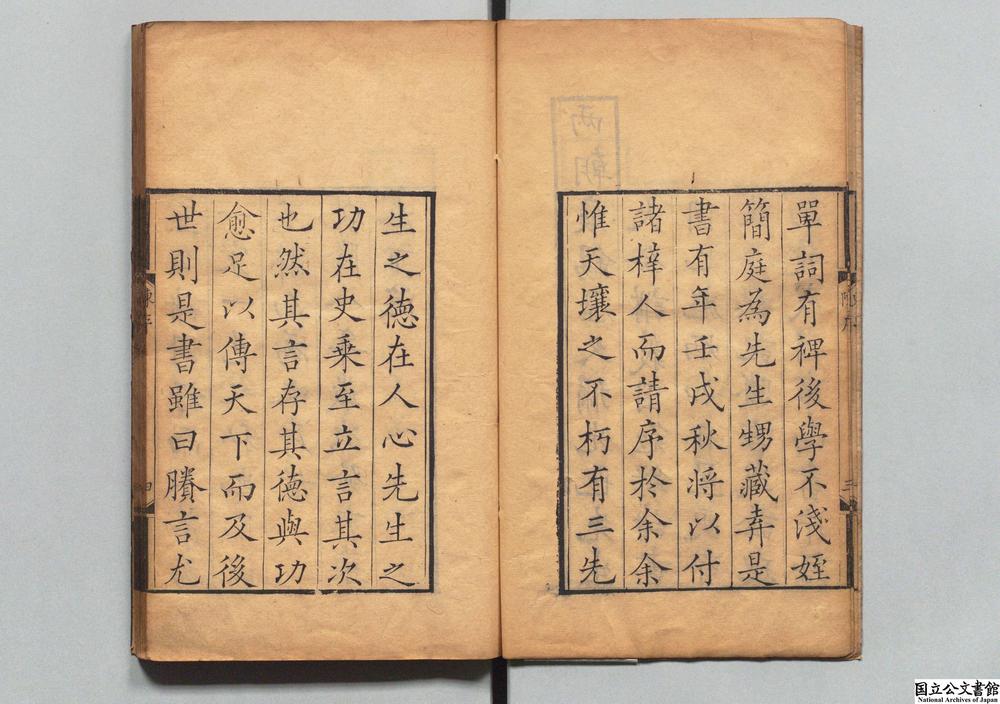 單詞有裨後學不淺姪
簡庭為先生甥藏弆是
書有年壬戌秋将以付
諸梓人而請序扵余余
惟天壤之不朽有三先
三
生之德在人心先生之
功在史乗至立言其次
也然其言存其德與功
愈足以傳天下而及後
世則是書雖曰賸言尤
四
国立公文書館
National Archives of Japan